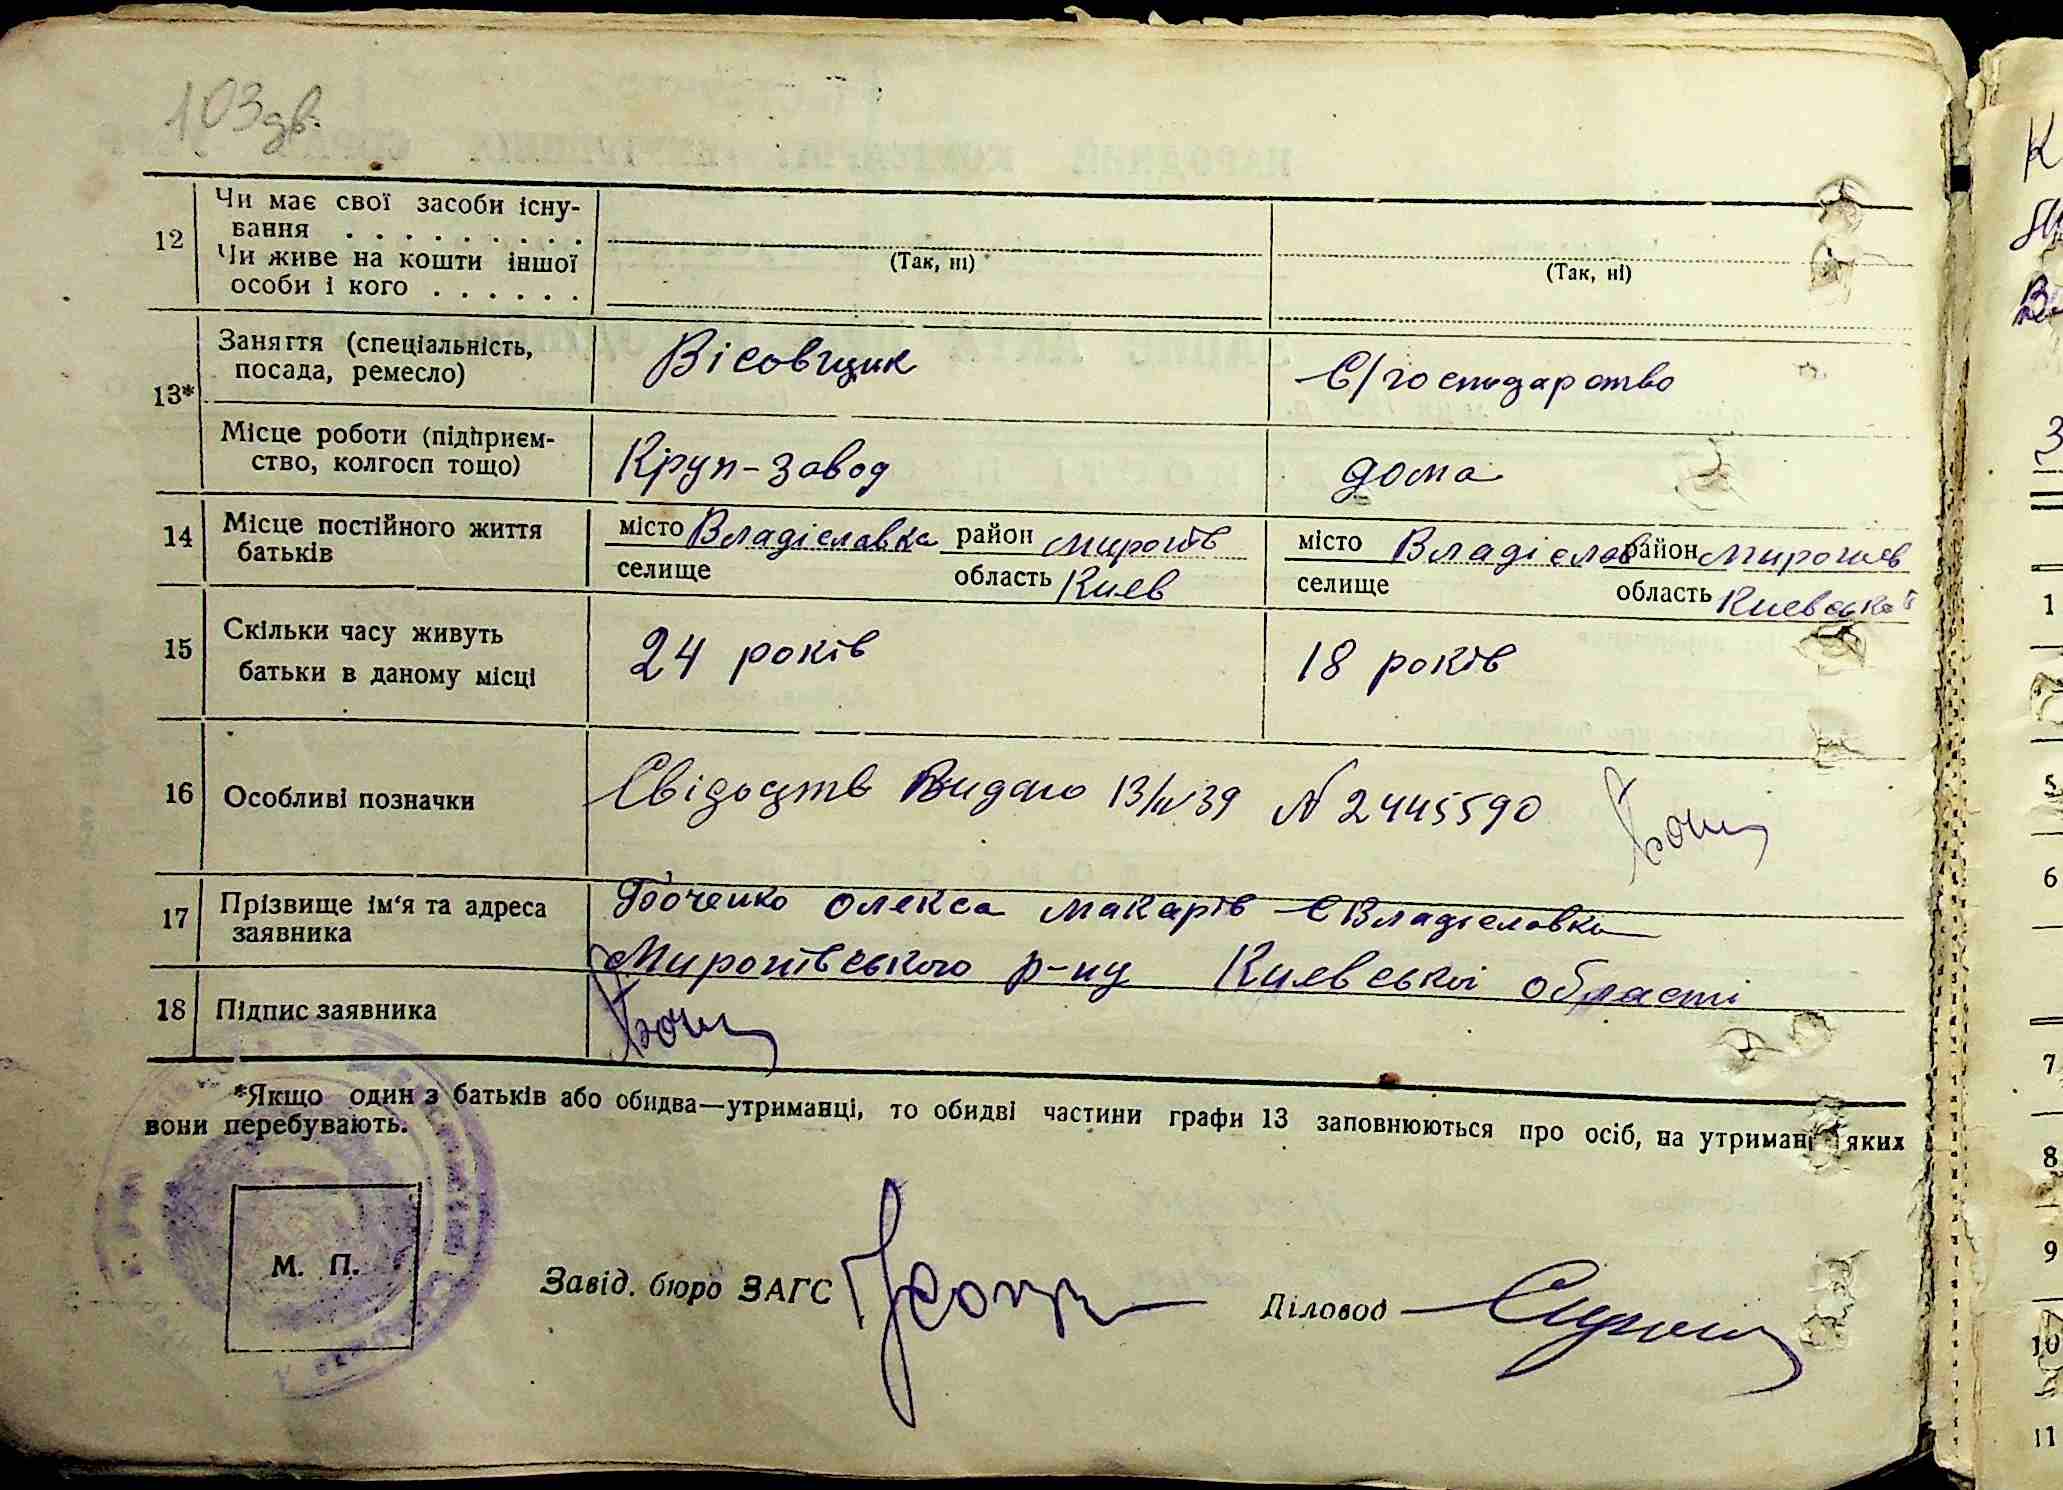 103 зв.
12
Чи має свої засоби існу-
вання . . . . . . . . .
(Так, ні)
(Так, ні)
Чи живе на кошти іншої
особи і кого . . . . . .
13*
Заняття (спеціальність,
посада, ремесло)
Вісовщик
С/господарство
Місце роботи (підприєм-
ство, колгосп тощо)
Круп-завод
дома
14
Місце постійного життя
батьків
місто Владіславка район Миронів
селище область Киев
місто Владіслав район Миронів
селище область Киевської
15
Скільки часу живуть
батьки в даному місці
24 років
18 років
16
Особливі позначки
Свідоцтв Видано 13/IV 39 № 2445590
17
Прізвище ім'я та адреса
заявника
Олекса Макарів С Владіславка
Миронівського р-ну Киевської області
18
Підпис заявника
*Якщо один з батьків або обидва—утриманці, то обидві частини графи 13 заповнюються про осіб, на утриманні яких
вони перебувають.
М. П.
Завід. бюро ЗАГС
Діловод
К
З
1
5
6
7
8
9
10
11